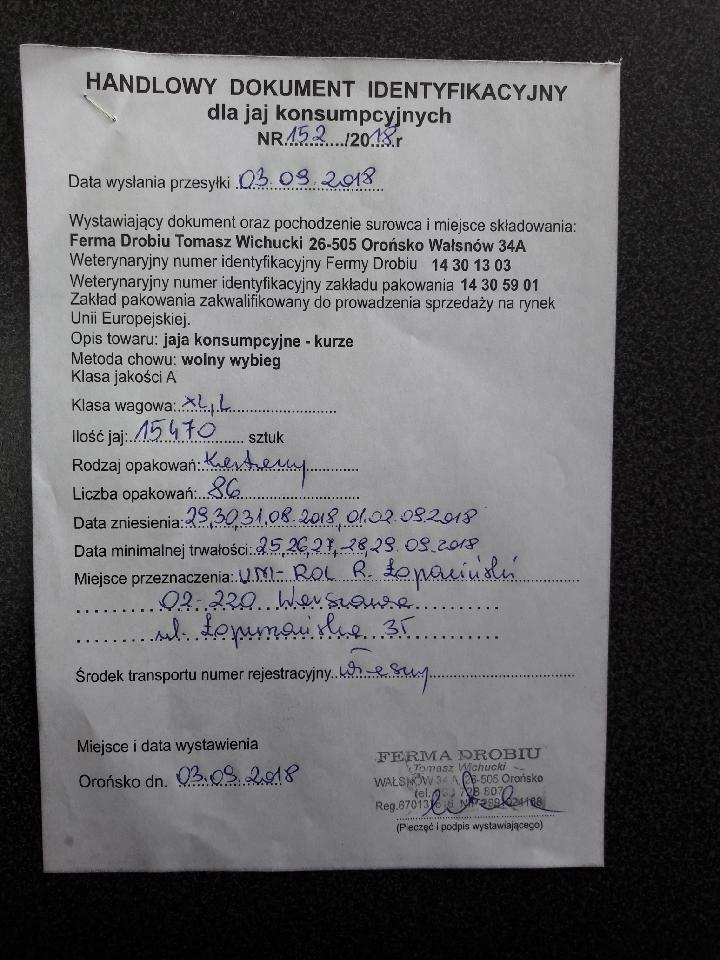 HANDLOWY DOKUMENT IDENTYFIKACYJNY
dla jaj konsumpcyjnych
NR.152.../2018.r
Data wysłania przesyłki .03.09.2018
Wystawiający dokument oraz pochodzenie surowca i miejsce składowania:
Ferma Drobiu Tomasz Wichucki 26-505 Orońsko Wałsnów 34A
Weterynaryjny numer identyfikacyjny Fermy Drobiu 14 30 13 03
Weterynaryjny numer identyfikacyjny zakładu pakowania 14 30 59 01
Zakład pakowania zakwalifikowany do prowadzenia sprzedaży na rynek
Unii Europejskiej.
Opis towaru: jaja konsumpcyjne - kurze
Metoda chowu: wolny wybieg
Klasa jakości A
Klasa wagowa: XL, L
Ilość jaj: 15470 sztuk
Rodzaj opakowań:
Liczba opakowań: 86
Data zniesienia: 29,30,31,08.2018, 01.02.09.2018
Data minimalnej trwałości: 25,26,27,28,29.09.2018
Miejsce przeznaczenia: UNI-ROL R. Łopaciński
02-220 Warszawa
ul. Łopuszańska
Środek transportu numer rejestracyjny. własny
Miejsce i data wystawienia
Orońsko dn. 03.09.2018
FERMA DROBIU
Tomasz Wichucki
WAŁSNÓW 34 A, 26-505 Orońsko
tel.
(Pieczęć i podpis wystawiającego)